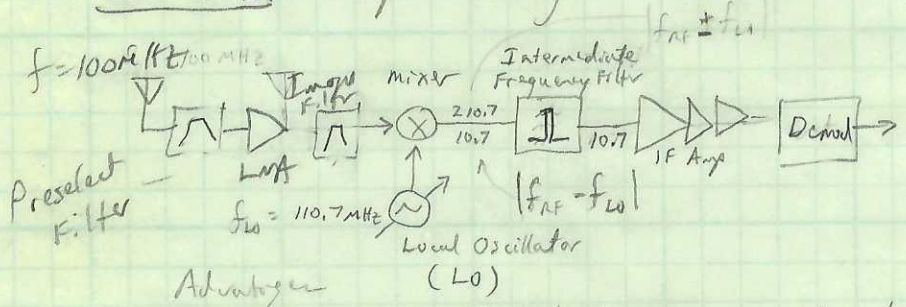 |f_RF ± f_LO|
f = 100 MHz 100 MHz
Image Filter
mixer
Intermediate Frequency Filter
210.7
10.7
10.7
IF Amp
Demod
Preselect Filter
LNA
f_LO = 110.7 MHz
|f_RF - f_LO|
Local Oscillator
(LO)
Advantages